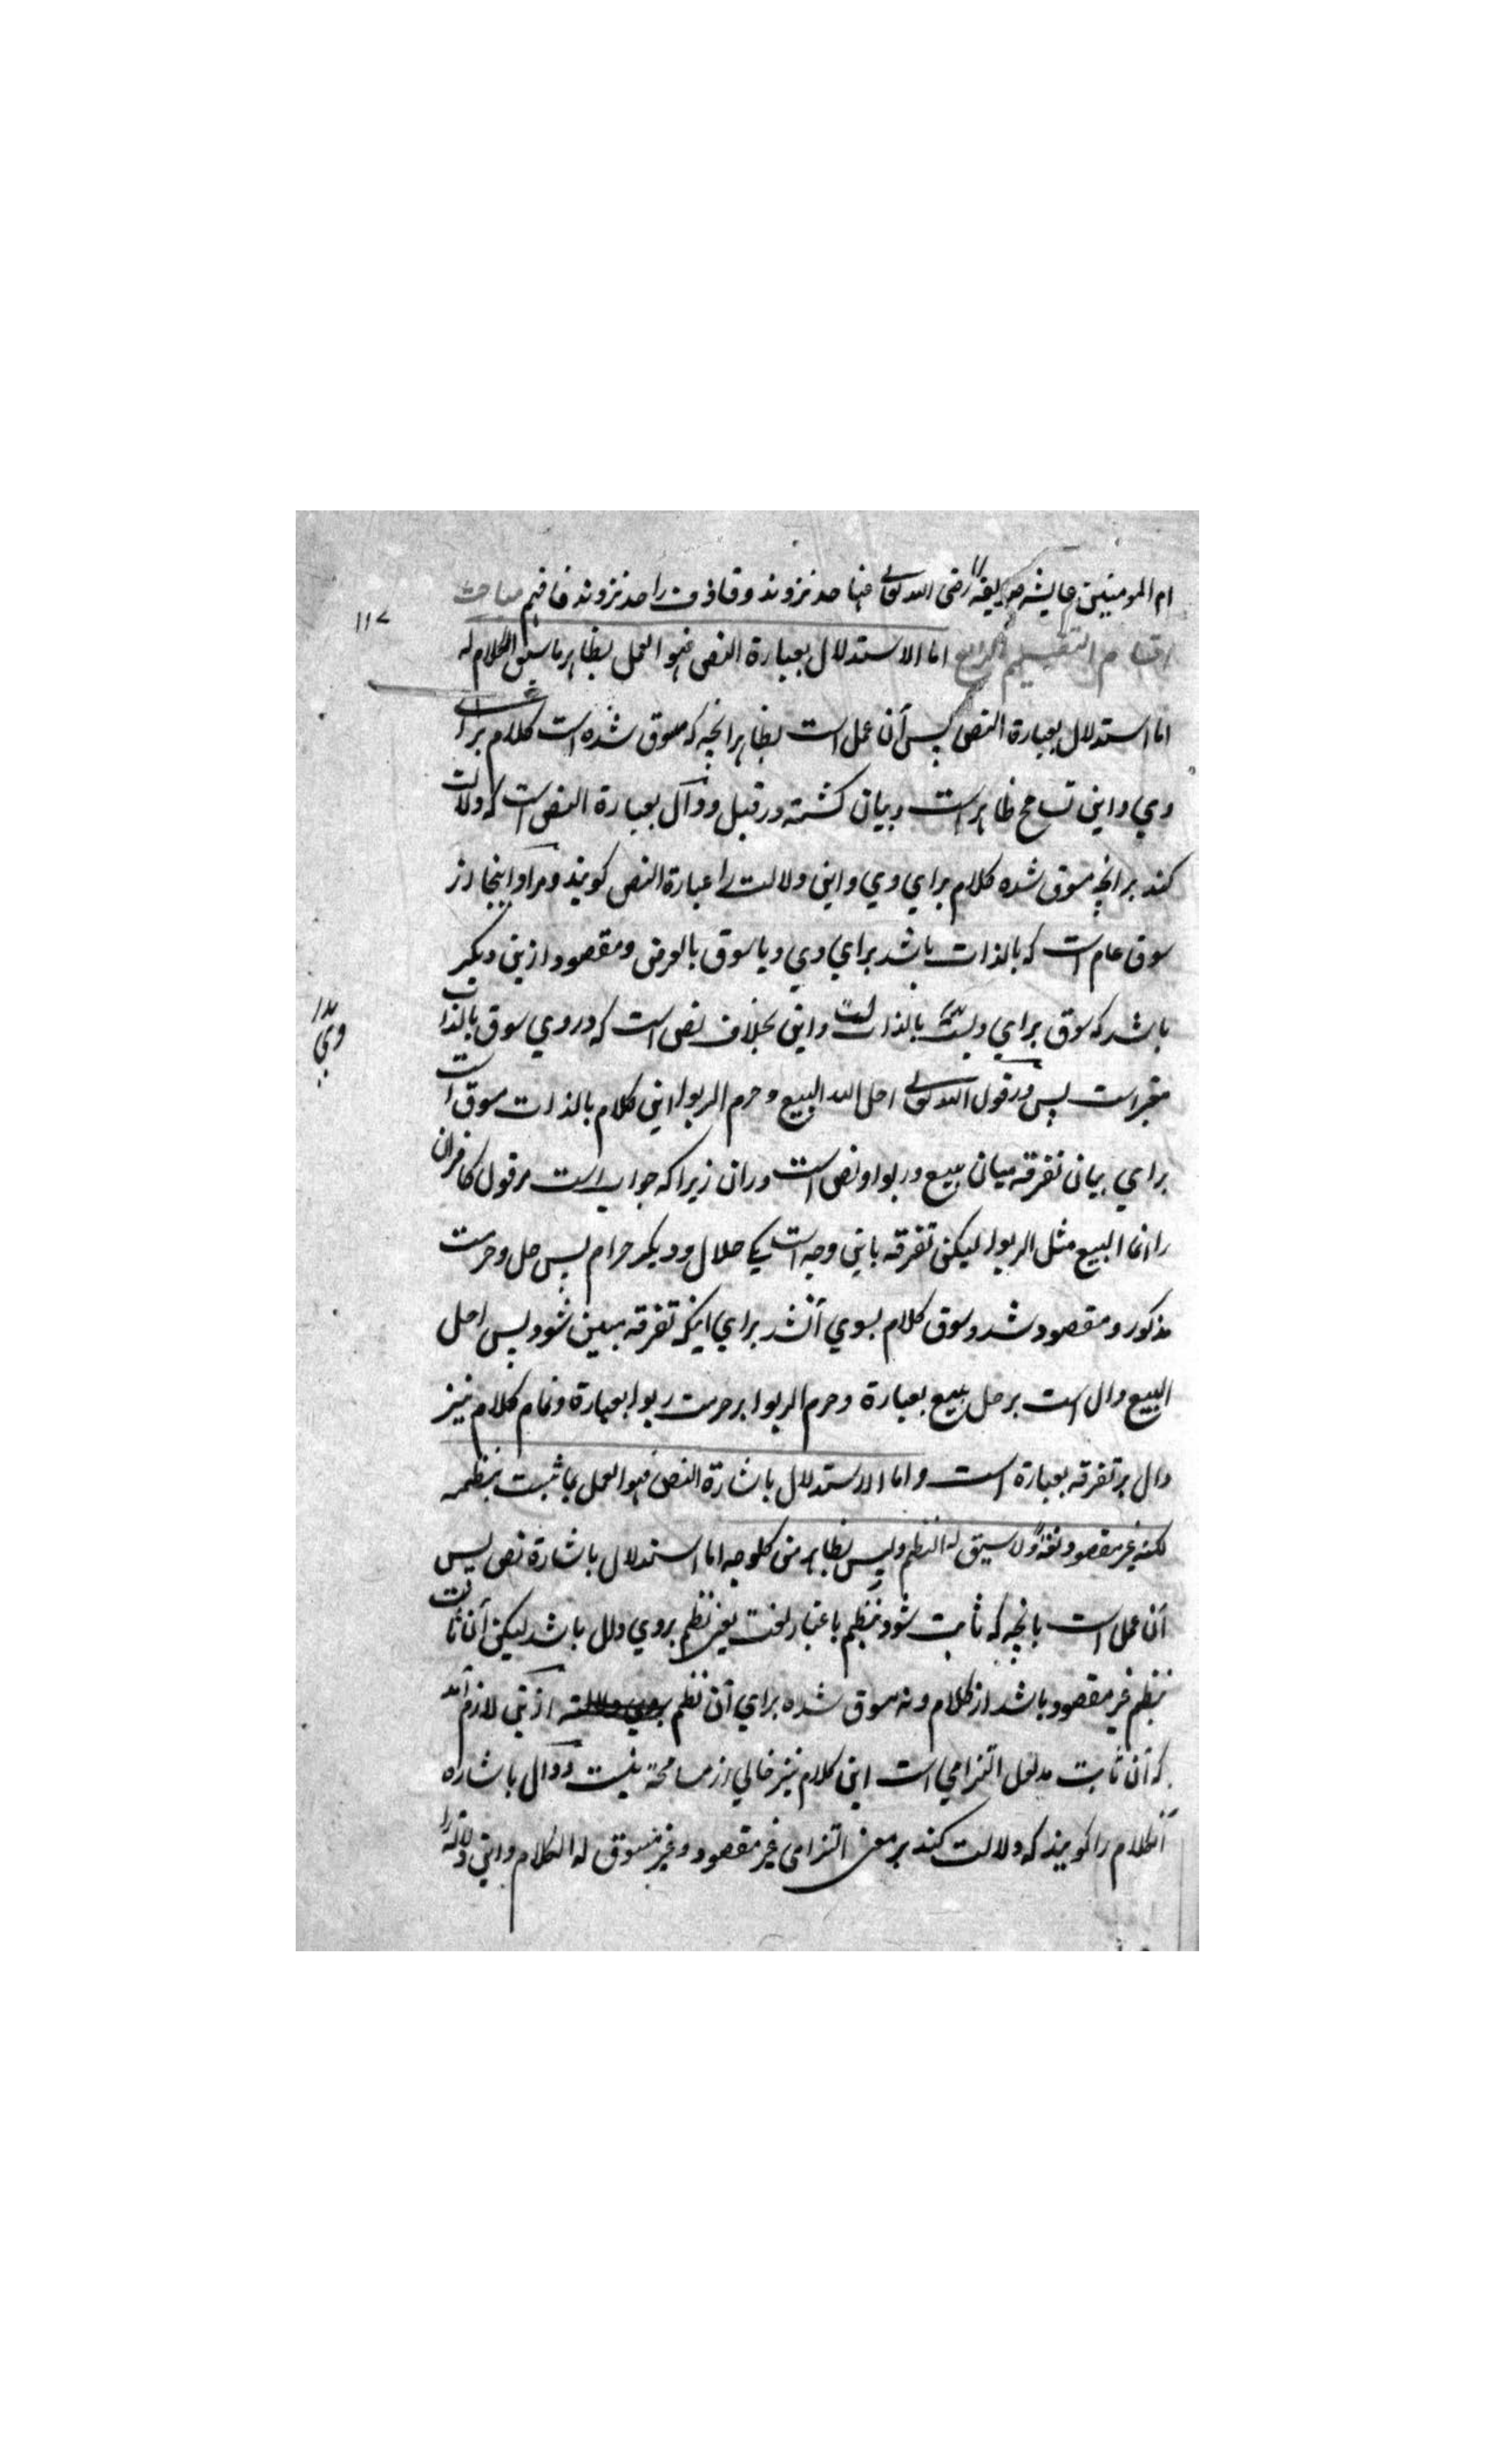 ام المومنین عایشه صدیقه رضی الله تعالی عنها حد نزوند و قاذف را حد نزوند فافهم مباحث
۱۱۷
اقسام التقسیم الرابع اما الاستدلال بعبارة النص فهو العمل بظاهر ما سیق الکلام له
اما استدلال بعبارة النص پس آن عمل است بظاهر انچه که مسوق شده است کلام برای
وی و این تسامح ظاهر است و بیان کشته در قبل و دال بعبارة النص است که دلالت
کند بر انچه مسوق شده کلام برای وی و این دلالت را عبارة النص کویند و مراد اینجا از
سوق عام است که بالذات باشد برای وی و یا سوق بالعرض و مقصود ازین دیکر
باشد که سوق برای بالذات است و این بخلاف نص است که در وی سوق بالذات
معتبر است پس در قول الله تعالی احل الله البیع و حرم الربوا این کلام بالذات مسوق است
برای بیان تفرقه میان بیع و ربوا و نص است در ان زیرا که جواب است مر قول کافران
را انما البیع مثل الربوا لیکن تفرقه باین وجه است یکی حلال و دیکر حرام پس حل و حرمت
مذکور و مقصود شد و سوق کلام بسوی آنشد برای اینکه تفرقه مبین شود پس احل
البیع دال است بر حل بیع بعبارة و حرم الربوا بر حرمت ربوا بعبارة و تمام کلام نیز
دال بر تفرقه بعبارة است و اما الاستدلال باشارة النص فهو العمل بما ثبت بنظمه
لکنه غیر مقصود و لا سیق له النظم و لیس بظاهر من کل وجه اما استدلال باشارة نص پس
آن عمل است بانچه که ثابت شود بنظم باعتبار لغت یعنی نظم بر وی دال باشد لیکن آن ثابت
بنظم غیر مقصود باشد از کلام و نه مسوق شده برای آن نظم ازین لازم آمد
که آن ثابت مدلول التزامی است این کلام نیز خالی از مسامحة نیست و دال باشاره
آنکلام را کویند که دلالت کند بر معنی التزامی غیر مقصود و غیر مسوق له الکلام و این دلالة را